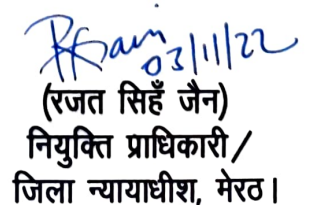 RJain
03/11/22
(रजत सिहँ जैन)
नियुक्ति प्राधिकारी/
जिला न्यायाधीश, मेरठ।